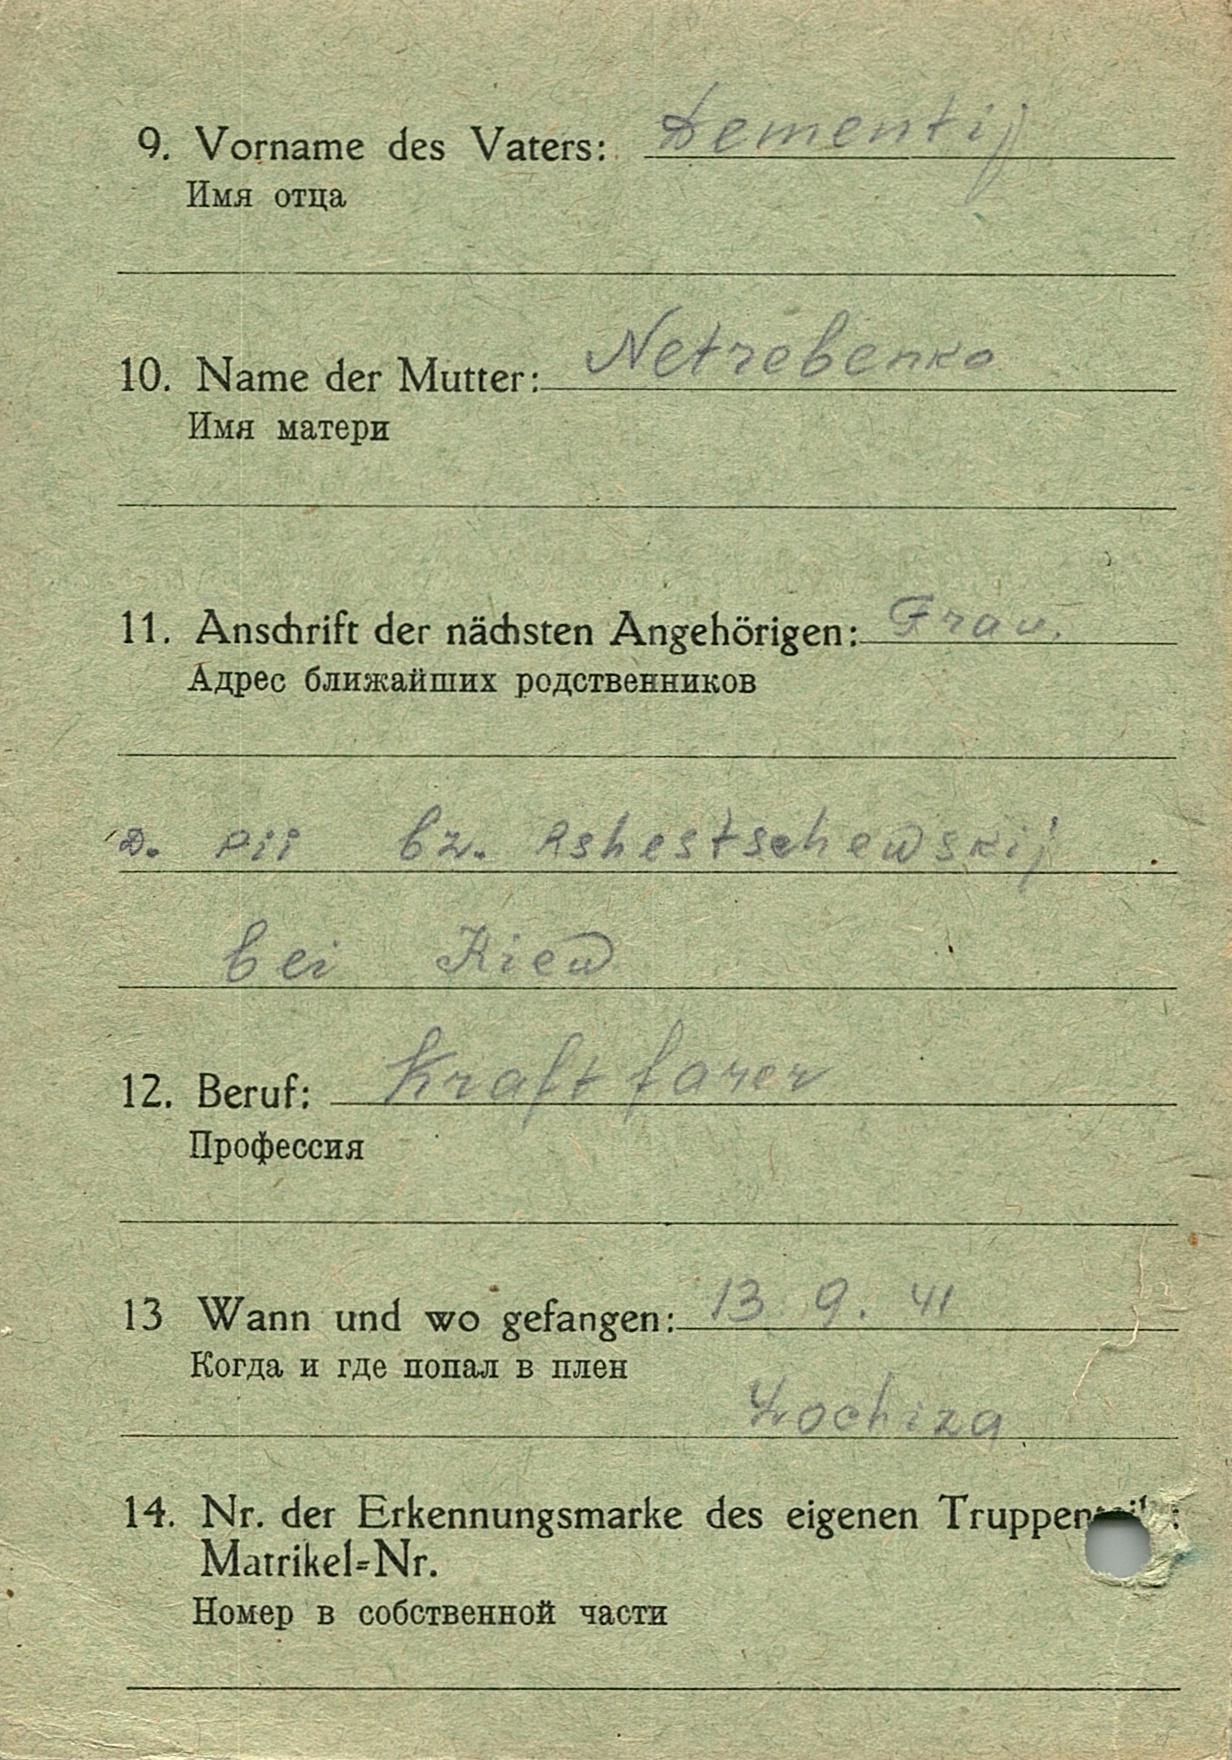 9. Vorname des Vaters: Dementij
Имя отца
10. Name der Mutter: Netrebenko
Имя матери
11. Anschrift der nächsten Angehörigen: Frau.
Адрес ближайших родственников
D. Pii bz. Rshestschewskij
bei Kiew
12. Beruf: Kraftfarer
Профессия
13 Wann und wo gefangen: 13. 9. 41
Когда и где попал в плен
Lochiza
14. Nr. der Erkennungsmarke des eigenen
Matrikel-Nr.
Номер в собственной части